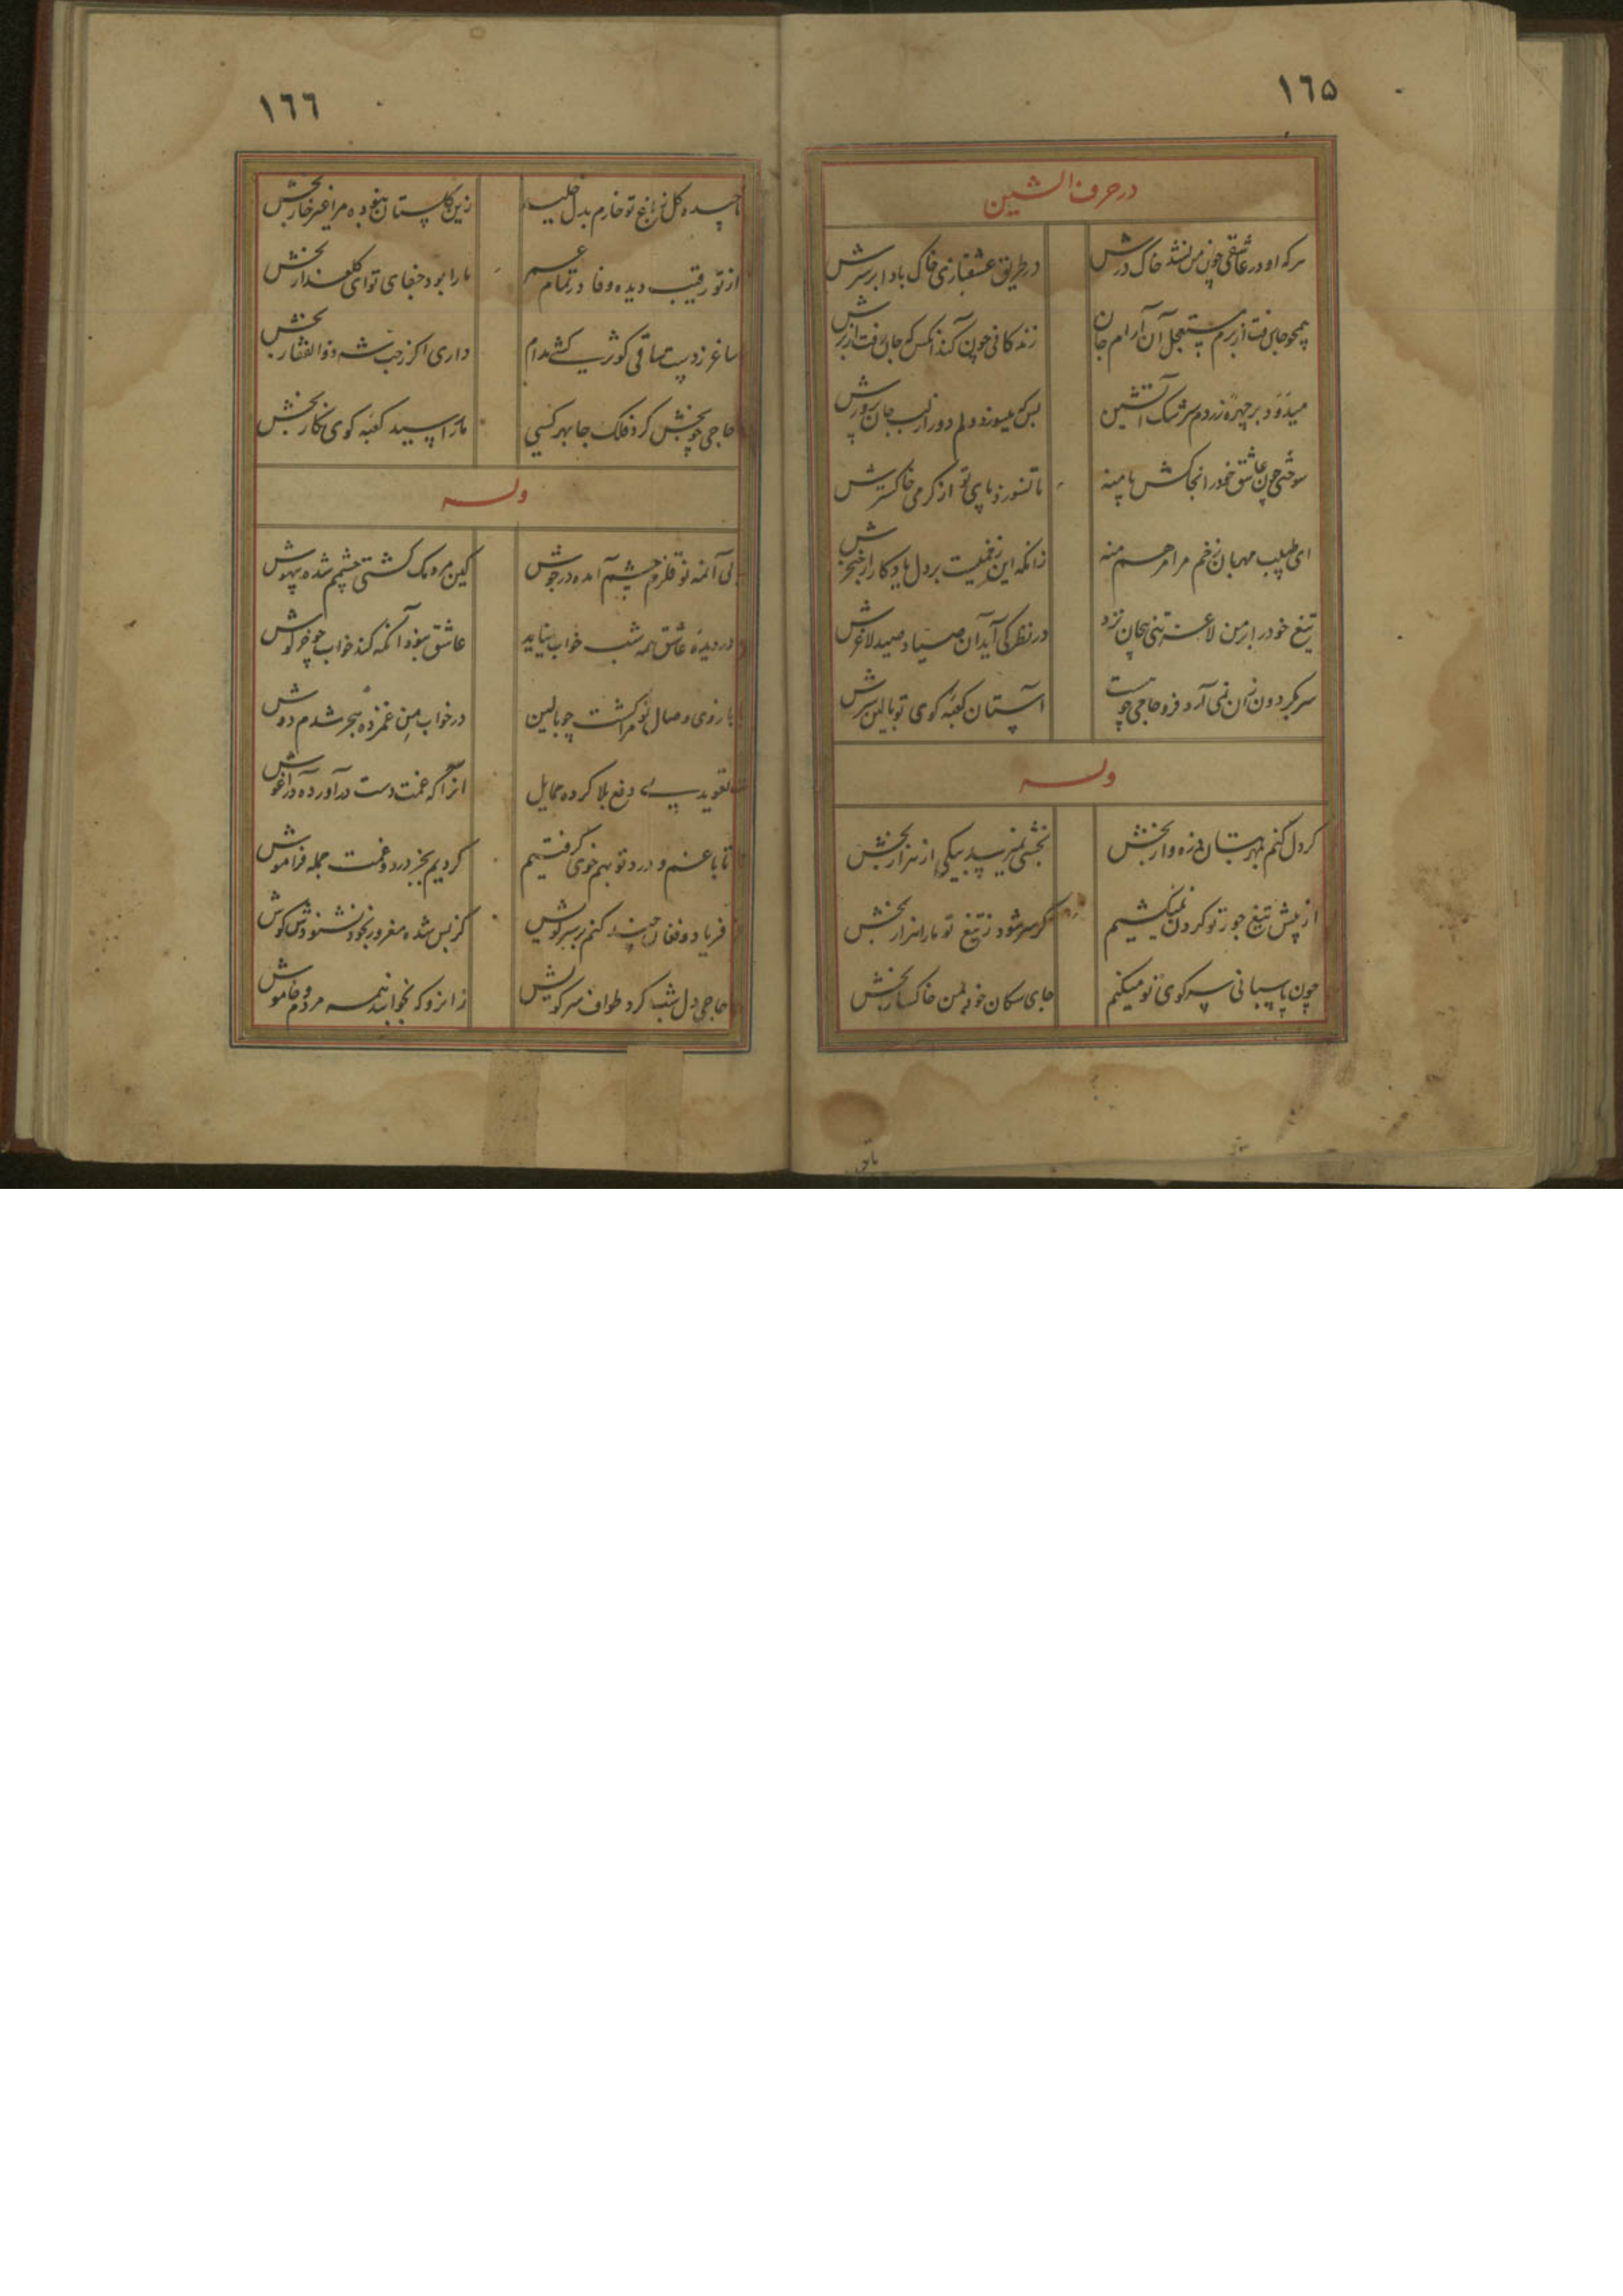 ١٦٥
در حرف الشین
هر که او در عاشقی چون من نشد خاک درش
در طریق عشقبازی خاک بادا بر سرش
همچو جان رفت از برم مستعجل آن آرام جان
زندکانی چون کند آنکس که جان رفت از برش
میدود بر چهره زردم سرشک آتشین
بس که میسوزد دلم دور از لب جان پرورش
سوختی چون عاشق خود را انجا کش پا منه
تا نسوزد پای تو از کرمی خاکسترش
ای طبیب مهربان زخم مرا مرهم منه
زانکه این زخمیست بر دل یادکار از خنجرش
تیغ خود را بر من لاغر تنی بیجان نزد
در نظر کی آید آن صیاد صید لاغرش
سر بکردون زان نمی آرد فرو حاجی چو هست
آستان کعبه کوی تو بالین سرش
وله
کر دل کنم بمهر بتان ذره وار بخش
بخشی نمیرسد بیکی از هزار بخش
از پیش تیغ جور تو کردن نمیکشیم
کر سر شود ز تیغ تو ما را هزار بخش
چون پاسبانی سر کوی تو میکنم
جای سکان خود بمن خاکسار بخش
١٦٦
ناچیده کل ز باغ تو خارم بدل خلید
زین کلستان بغیر مرا غیر خار بخش
از تو رقیب دیده وفا در تمام عمر
ما را بود جفای تو ای کلعذار بخش
ساغر ز دست ساقی کوثر کشی مدام
داری اکر ز حب شه ذوالفقار بخش
حاجی چو بخش کرد فلک جا بهر کسی
ما را رسید کعبه کوی نکار بخش
وله
بی آئنه تو قلزم چشم آمده در جوش
کین مردمک کشتی چشمم شده بیهوش
در دیده عاشق همه شب خواب نیاید
عاشق نبود آنکه کند خواب چو خرکوش
بازوی وصال تو مرا کشت چو بالین
در خواب من غمزده هجر شدم دوش
تعویذ پی دفع بلا کرده حمایل
آنرا که غمت دست در آورده در آغوش
تا با غم و درد تو بهم خوی کرفتیم
کردیم بجز درد و غمت جمله فراموش
فریاد و فغان چند کنم بر سر کویش
کز بس شده مغرور بخود نشنودش کوش
حاجی دل شب کرد طواف سر کویش
زانرو که بخوابند همه مردم و خاموش